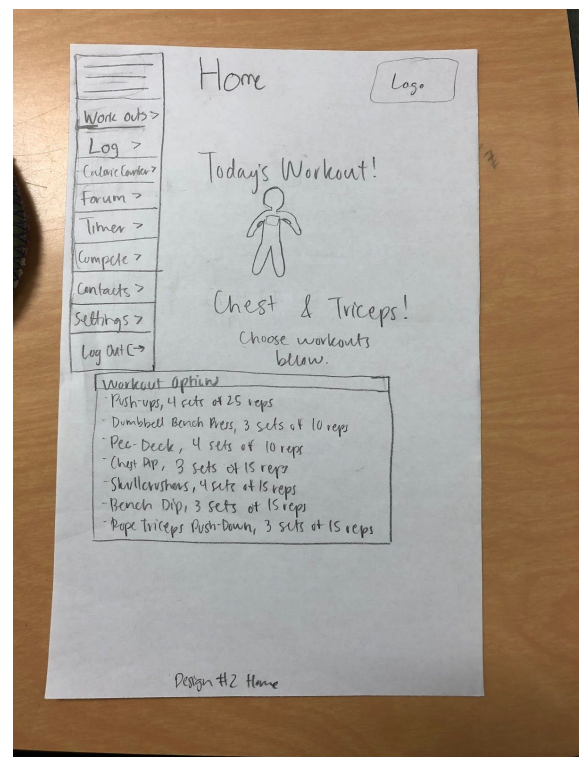 Home
Logo
Work outs >
Log >
Calorie Counter >
Forum >
Timer >
Compete >
Contacts >
Settings >
Log Out
Today's Workout!
Chest & Triceps!
Choose workouts
below.
Workout Options
- Push-ups, 4 sets of 25 reps
- Dumbbell Bench Press, 3 sets of 10 reps
- Pec-Deck, 4 sets of 10 reps
- Chest Dip, 3 sets of 15 reps
- Skullcrushers, 4 sets of 15 reps
- Bench Dip, 3 sets of 15 reps
- Rope Triceps Push-Down, 3 sets of 15 reps
Design #2 Home